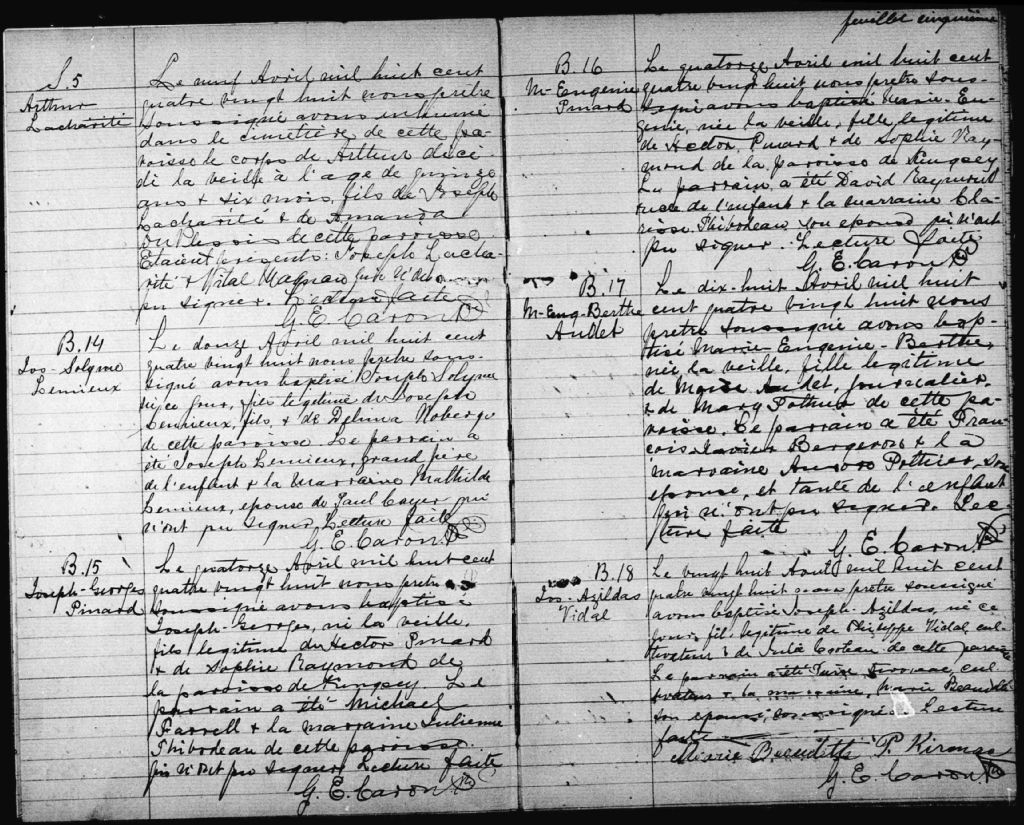 feuillet cinquième
S. 5
Arthur
Lacharité
Le neuf Avril mil huit cent
quatre vingt huit nous prêtre
soussigné avons inhumé
dans le cimetière de cette pa-
roisse le corps de Arthur décé-
dé la veille à l'age de quinze
ans & six mois, fils de Joseph
Lacharité & de Amanda
Duplessis de cette paroisse
Etaient présents: Joseph Lacha-
rité & Vital
pu signer. Lecture faite
G. E. Caron Ptre
B. 14
Jos. Solyme
Lemieux
Le douze Avril mil huit cent
quatre vingt huit nous prêtre sous-
signé avons baptisé Joseph Solyme
né ce jour, fils légitime de Joseph
Lemieux, fils, & de Delima Roberge
de cette paroisse Le parrain a
été Joseph Lemieux, grand père
de l'enfant & la marraine Mathilde
Lemieux, epouse de Paul Cayer qui
n'ont pu signer, Lecture faite
G. E. Caron. Ptre
B. 15
Joseph-Georges
Pinard
Le quatorze Avril mil huit cent
quatre vingt huit nous prêtre
soussigné avons baptisé
Joseph-Georges, né la veille,
fils légitime de Hector Pinard
& de Sophie Raymond de
la paroisse de Kingsey. Le
parrain a été Michael
Farrell & la marraine Julienne
Thibodeau de cette paroisse
qui n'ont pu signer Lecture faite
G. E. Caron Ptre
B. 16
M-Eugenie
Pinard
Le quatorze Avril mil huit cent
quatre vingt huit nous prêtre sous-
signé avons baptisé Marie-Eu-
génie, née la veille, fille légitime
de Hector Pinard & de Sophie Ray-
mond de la paroisse de Kingsey
Le parrain a été David Raymond
oncle de l'enfant & la marraine Cla-
risse Thibodeau son epouse qui n'ont
pu signer. Lecture faite
G. E. Caron Ptre
B. 17
M-Eug-Berthe
Audet
Le dix-huit Avril mil huit
cent quatre vingt huit nous
prêtre soussigné avons bap-
tisé Marie-Eugenie-Berthe,
née la veille, fille légitime
de Moïse Audet, journalier,
& de Mary Pothier de cette pa-
roisse. Le parrain a été Fran-
çois-Xavier Bergeron & la
marraine Aurore Pothier, son
epouse, et tante de l'enfant
qui n'ont pu signer. Lec-
ture faite
G. E. Caron. Ptre
B. 18
Jos. Azildas
Vidal
Le vingt huit Avril mil huit cent
quatre vingt huit nous prêtre soussigné
avons baptisé Joseph-Azildas, né ce
jour, fils légitime de Philippe Vidal cul-
tivateur & de Julie Croteau de cette paroisse
Le parrain a été cul-
tivateur & la marraine, Marie Beaudette
son epouse, soussignés Lecture
faite
Marie Beaudette P. Kirouac
G. E. Caron Ptre